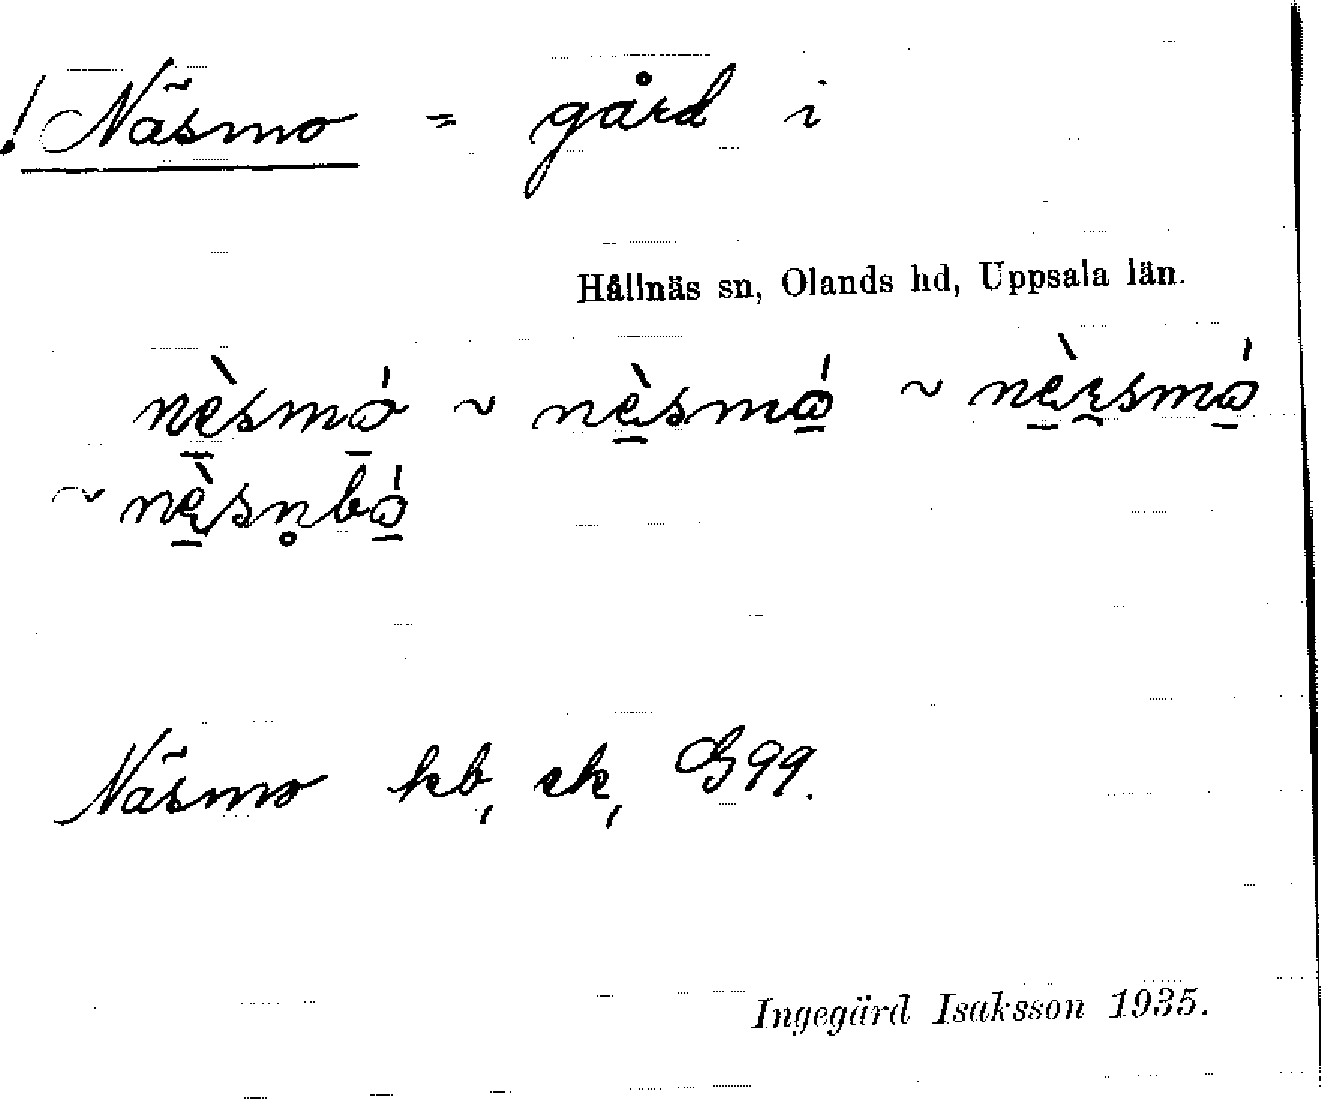 ! Näsmo = gård i
Hållnäs sn, Olands hd, Uppsala län.
nè̱smó̱ ~ nè̱smó̱ ~ nè̱ɛ̱smó̱
~ nè̱sn̥bó̱
Näsmo kb, ek, G99.
Ingegärd Isaksson 1935.